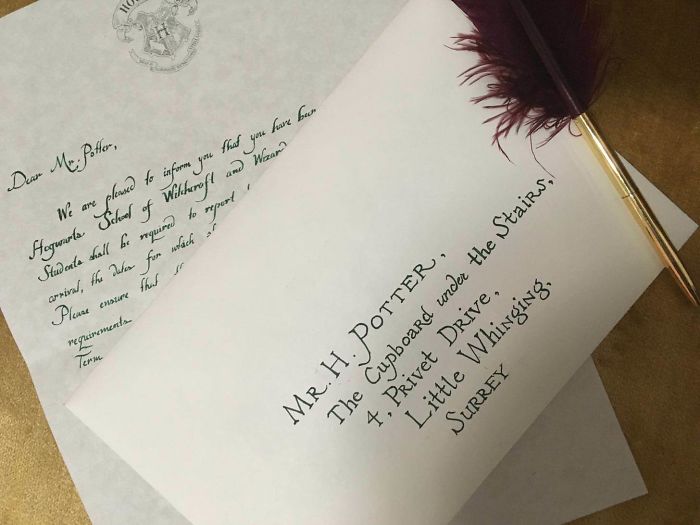 HO
H
Dear Mr. Potter,
We are pleased to inform you that you have been
Hogwarts School of Witchcraft and Wizard
Students shall be required to report
arrival, the dates for which
Please ensure that
requirements
Term
Mr. H. Potter,
The Cupboard under the Stairs,
4, Privet Drive,
Little Whinging,
Surrey